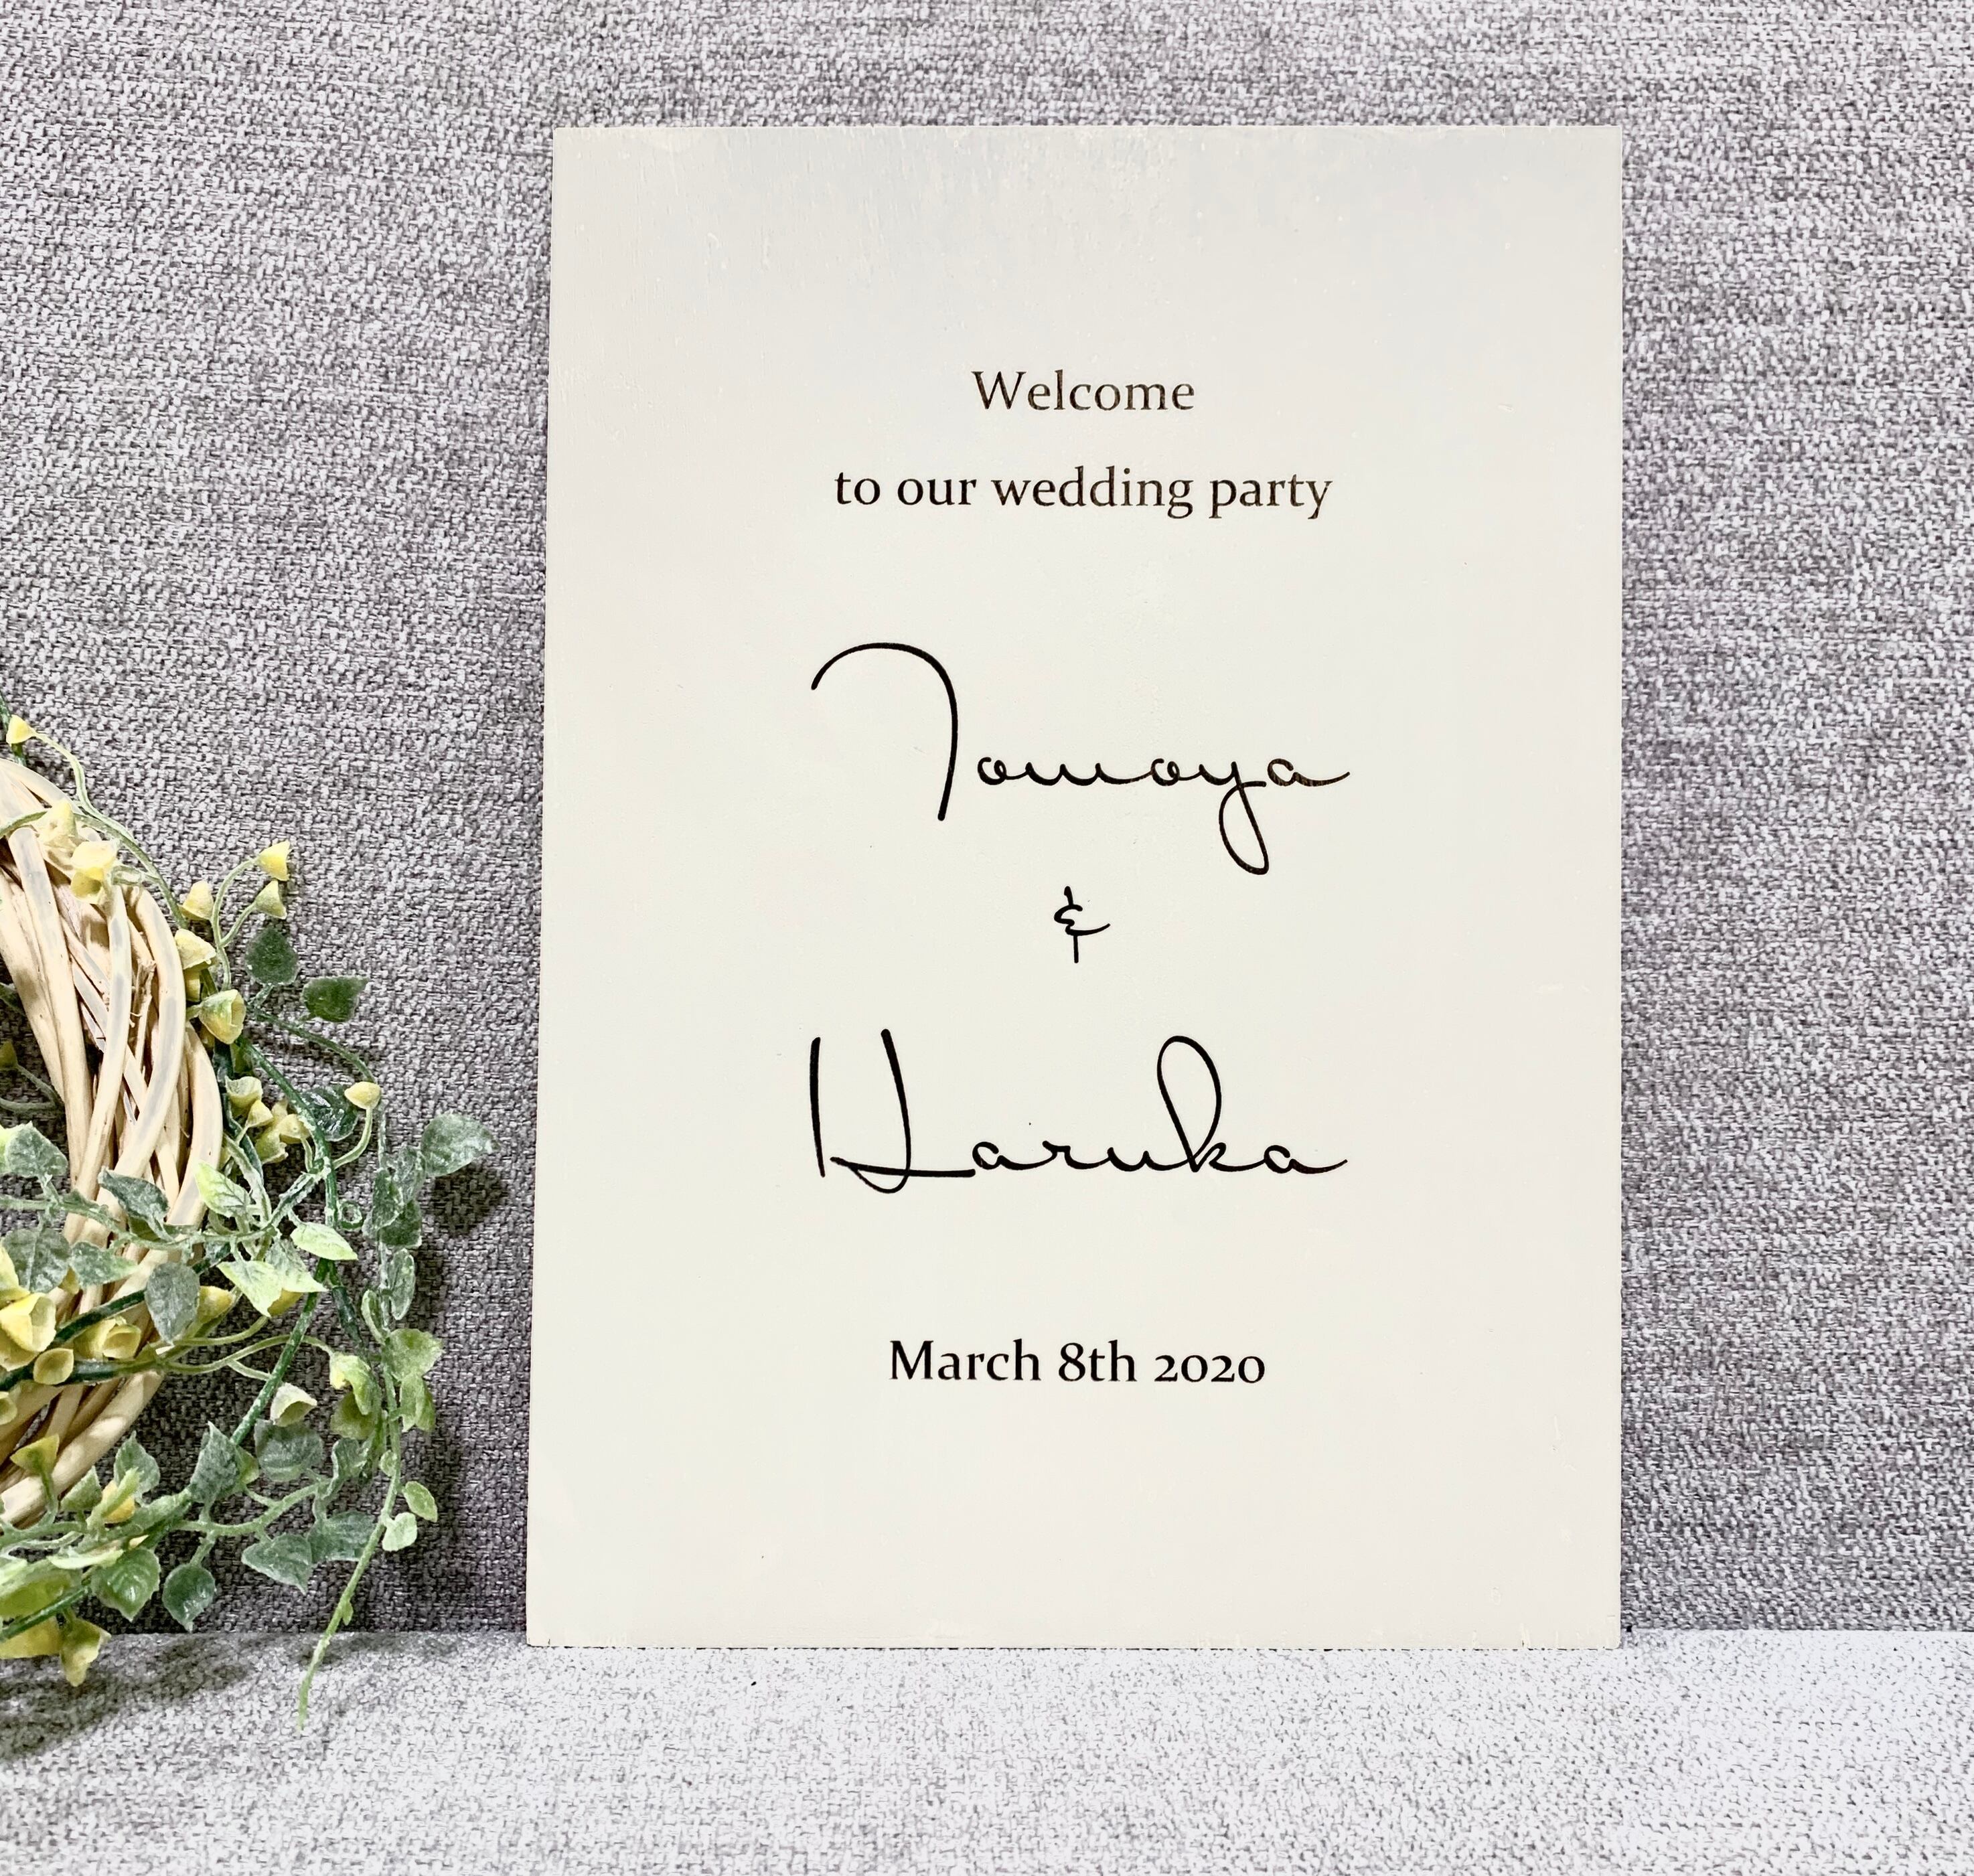 Welcome
to our wedding party
Tomoya
&
Haruka
March 8th 2020